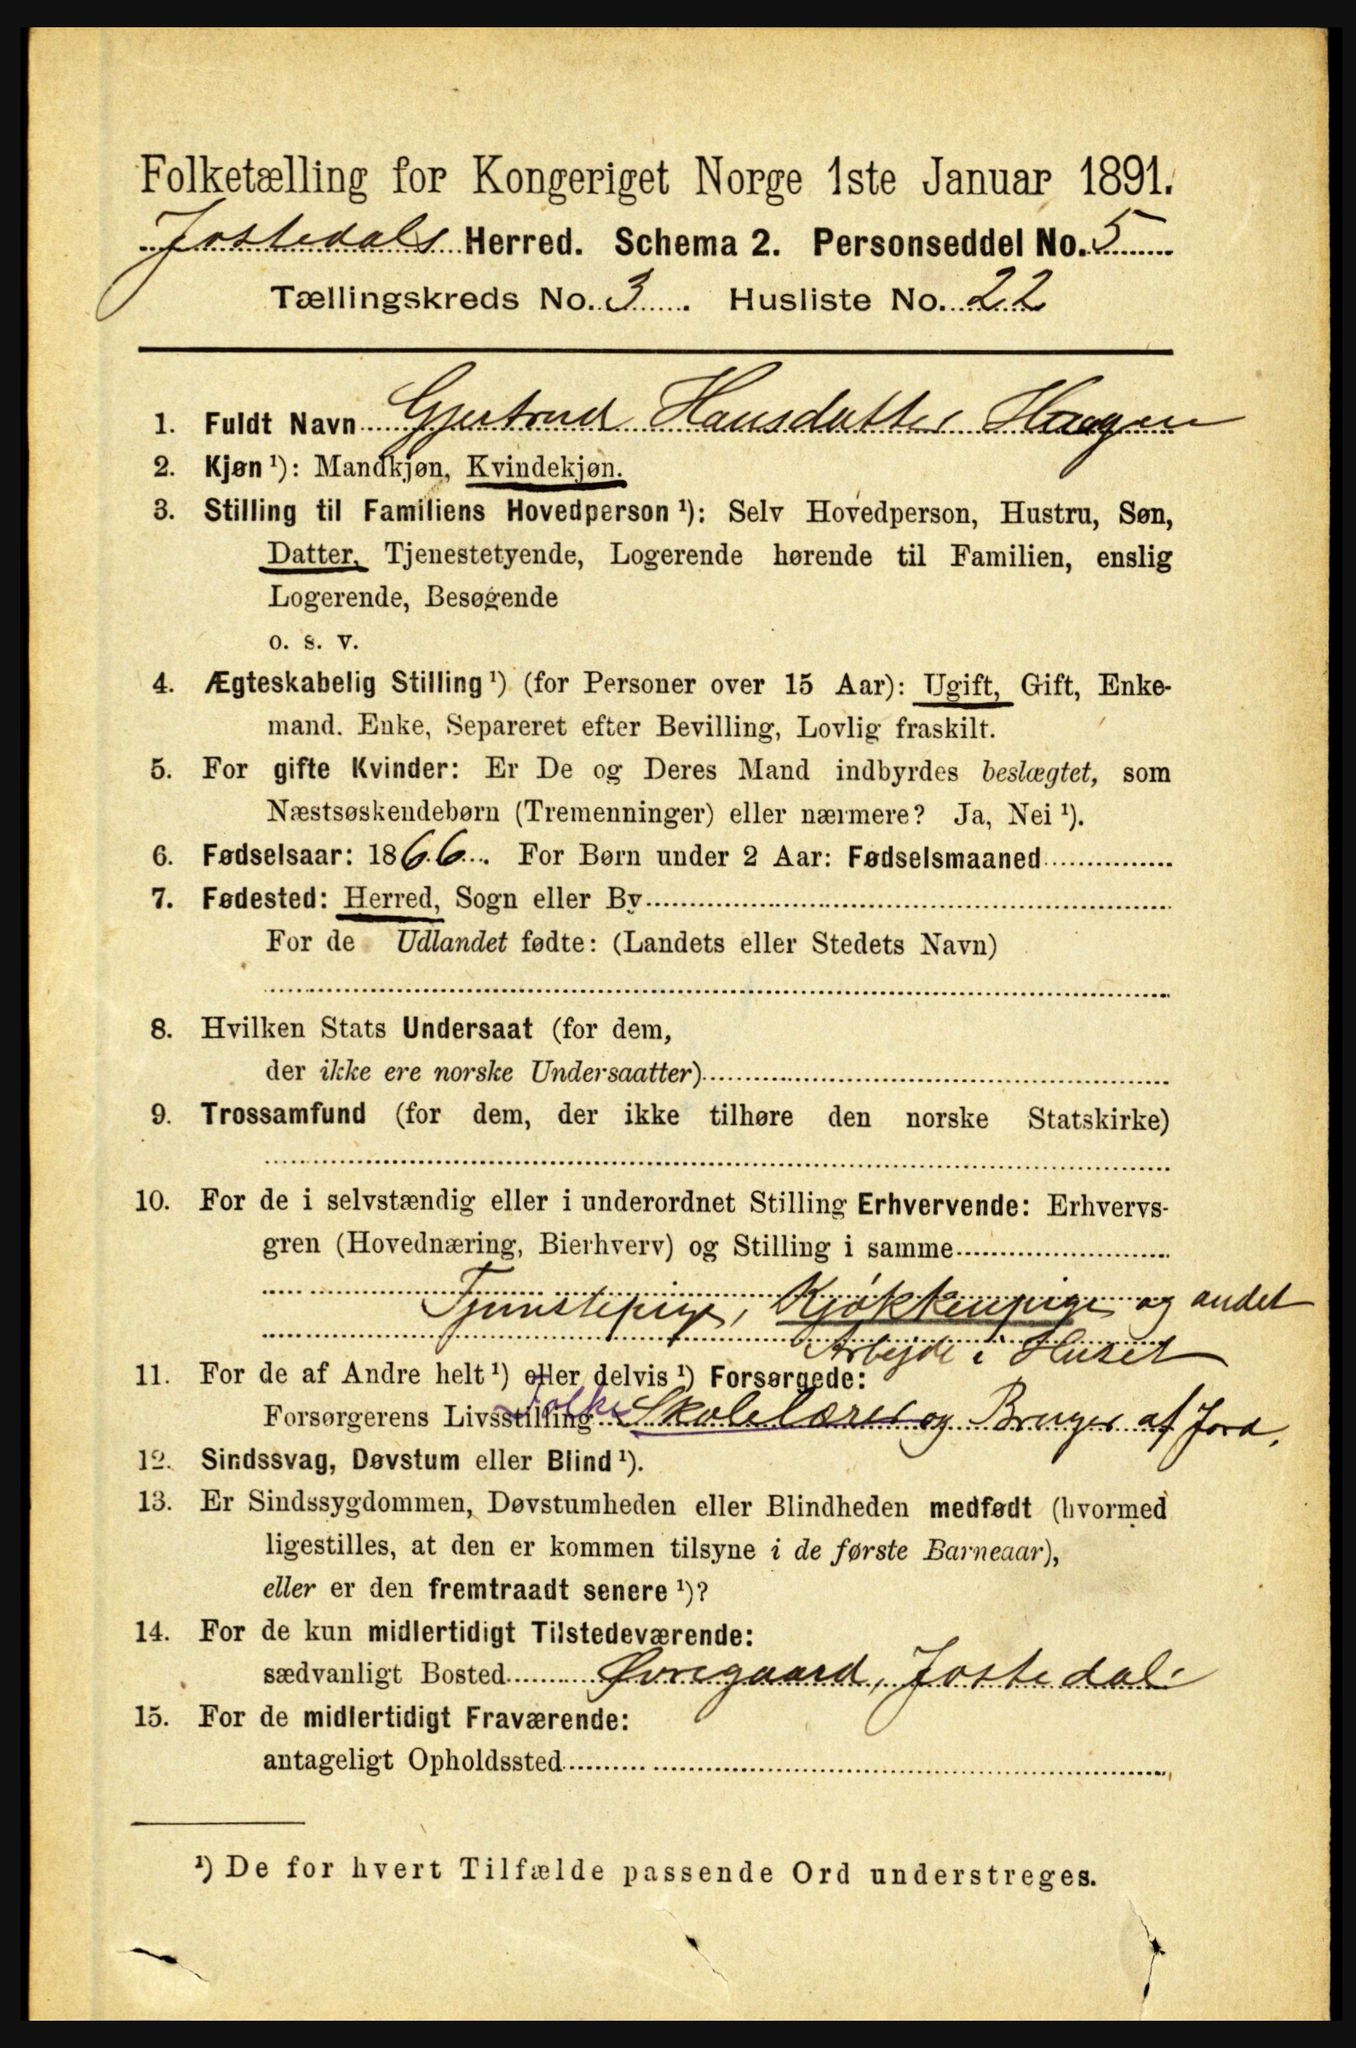 Folketælling for Kongeriget Norge 1ste Januar 1891.
Jostedals Herred. Schema 2. Personseddel No. 5
Tællingskreds No. 3. Husliste No. 22
1. Fuldt Navn Gjertrud Hansdatter Haugen
2. Kjøn ¹): Mandkjøn, Kvindekjøn.
3. Stilling til Familiens Hovedperson ¹): Selv Hovedperson, Hustru, Søn,
Datter, Tjenestetyende, Logerende hørende til Familien, enslig
Logerende, Besøgende
o. s. v.
4. Ægteskabelig Stilling ¹) (for Personer over 15 Aar): Ugift, Gift, Enke-
mand. Enke, Separeret efter Bevilling, Lovlig fraskilt.
5. For gifte Kvinder: Er De og Deres Mand indbyrdes beslægtet, som
Næstsøskendebørn (Tremenninger) eller nærmere? Ja, Nei ¹).
6. Fødselsaar: 1866. For Børn under 2 Aar: Fødselsmaaned
7. Fødested: Herred, Sogn eller By
For de Udlandet fødte: (Landets eller Stedets Navn)
8. Hvilken Stats Undersaat (for dem,
der ikke ere norske Undersaatter)
9. Trossamfund (for dem, der ikke tilhøre den norske Statskirke)
10. For de i selvstændig eller i underordnet Stilling Erhvervende: Erhvervs-
gren (Hovednæring, Bierhverv) og Stilling i samme
Tjenestepige, Kjøkkenpige og andet
Arbejde i Huset
11. For de af Andre helt ¹) eller delvis ¹) Forsørgede:
Forsørgerens Livsstilling Folke Skolelærer og Bruger af Jord.
12. Sindssvag, Døvstum eller Blind ¹).
13. Er Sindssygdommen, Døvstumheden eller Blindheden medfødt (hvormed
ligestilles, at den er kommen tilsyne i de første Barneaar),
eller er den fremtraadt senere ¹)?
14. For de kun midlertidigt Tilstedeværende:
sædvanligt Bosted Øvregaard, Jostedal
15. For de midlertidigt Fraværende:
antageligt Opholdssted
¹) De for hvert Tilfælde passende Ord understreges.